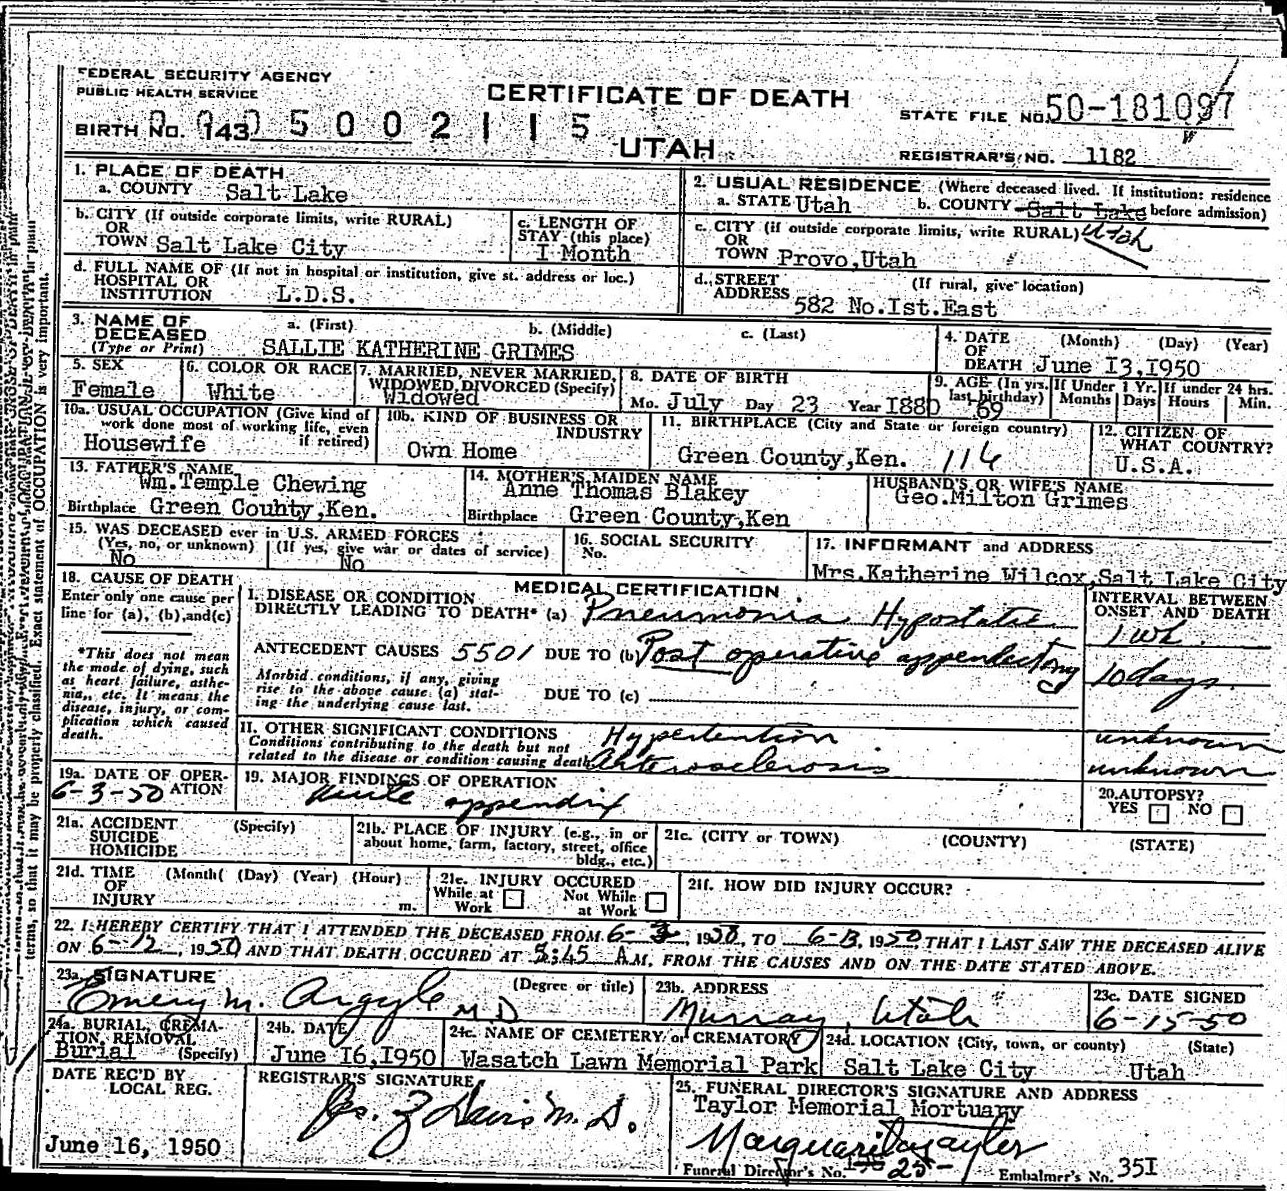 FEDERAL SECURITY AGENCY
PUBLIC HEALTH SERVICE
CERTIFICATE OF DEATH
STATE FILE NO. 50-181097
BIRTH NO. 143 0 5 0 0 2 1 1 5
UTAH
REGISTRAR'S NO. 1182
1. PLACE OF DEATH
a. COUNTY Salt Lake
2. USUAL RESIDENCE (Where deceased lived. If institution: residence before admission)
a. STATE Utah b. COUNTY Salt Lake Utah
b. CITY (If outside corporate limits, write RURAL)
OR
TOWN Salt Lake City
c. LENGTH OF
STAY (this place)
1 Month
c. CITY (if outside corporate limits, write RURAL)
OR
TOWN Provo,Utah
d. FULL NAME OF (If not in hospital or institution, give st. address or loc.)
HOSPITAL OR
INSTITUTION L.D.S.
d. STREET (If rural, give location)
ADDRESS 582 No.Ist.East
3. NAME OF DECEASED
(Type or Print)
a. (First) b. (Middle) c. (Last)
SALLIE KATHERINE GRIMES
4. DATE OF DEATH (Month) (Day) (Year)
June I3,1950
5. SEX
Female
6. COLOR OR RACE
White
7. MARRIED, NEVER MARRIED,
WIDOWED, DIVORCED (Specify)
Widowed
8. DATE OF BIRTH
Mo. July Day 23 Year I880
9. AGE (In yrs. last birthday) 69
If Under 1 Yr. Months Days
If under 24 hrs. Hours Min.
10a. USUAL OCCUPATION (Give kind of
work done most of working life, even
if retired)
Housewife
10b. KIND OF BUSINESS OR
INDUSTRY
Own Home
11. BIRTHPLACE (City and State or foreign country)
Green County,Ken. 116
12. CITIZEN OF
WHAT COUNTRY?
U.S.A.
13. FATHER'S NAME
Wm.Temple Chewing
Birthplace Green County,Ken.
14. MOTHER'S MAIDEN NAME
Anne Thomas Blakey
Birthplace Green County,Ken
HUSBAND'S OR WIFE'S NAME
Geo.Milton Grimes
15. WAS DECEASED ever in U.S. ARMED FORCES
(Yes, no, or unknown) (If yes, give war or dates of service)
No No
16. SOCIAL SECURITY
No.
17. INFORMANT and ADDRESS
Mrs.Katherine Wilcox,Salt Lake City
18. CAUSE OF DEATH
Enter only one cause per
line for (a), (b), and (c)
*This does not mean
the mode of dying, such
as heart failure, asthe-
nia, etc. It means the
disease, injury, or com-
plication which caused
death.
MEDICAL CERTIFICATION
INTERVAL BETWEEN
ONSET AND DEATH
I. DISEASE OR CONDITION
DIRECTLY LEADING TO DEATH* (a) Pneumonia Hypostatic 1 wk.
ANTECEDENT CAUSES 5501 DUE TO (b) Post operative appendectomy 10 days
Morbid conditions, if any, giving
rise to the above cause (a) stat-
ing the underlying cause last.
DUE TO (c)
II. OTHER SIGNIFICANT CONDITIONS
Conditions contributing to the death but not
related to the disease or condition causing death
Hypertention unknown
Arterosclerosis unknown
19a. DATE OF OPER-
ATION
6-3-50
19. MAJOR FINDINGS OF OPERATION
Acute appendix
20. AUTOPSY?
YES NO
21a. ACCIDENT (Specify)
SUICIDE
HOMICIDE
21b. PLACE OF INJURY (e.g., in or
about home, farm, factory, street, office
bldg., etc.)
21c. (CITY or TOWN) (COUNTY) (STATE)
21d. TIME (Month( (Day) (Year) (Hour)
OF
INJURY m.
21e. INJURY OCCURED
While at Work Not While at Work
21f. HOW DID INJURY OCCUR?
22. I HEREBY CERTIFY THAT I ATTENDED THE DECEASED FROM 6-3, 1950, TO 6-13, 1950 THAT I LAST SAW THE DECEASED ALIVE
ON 6-12, 1950 AND THAT DEATH OCCURED AT 3:45 A M, FROM THE CAUSES AND ON THE DATE STATED ABOVE.
23a. SIGNATURE (Degree or title)
Emery M. Argyle M D
23b. ADDRESS
Murray, Utah
23c. DATE SIGNED
6-15-50
24a. BURIAL, CREMA-
TION, REMOVAL
Burial (Specify)
24b. DATE
June I6,I950
24c. NAME OF CEMETERY or CREMATORY
Wasatch Lawn Memorial Park
24d. LOCATION (City, town, or county) (State)
Salt Lake City Utah
DATE REC'D BY
LOCAL REG.
June 16, 1950
REGISTRAR'S SIGNATURE
25. FUNERAL DIRECTOR'S SIGNATURE AND ADDRESS
Taylor Memorial Mortuary
Funeral Director's No. 25
Embalmer's No. 35I
terms, so that it may be properly classified. Exact statement of OCCUPATION is very important.